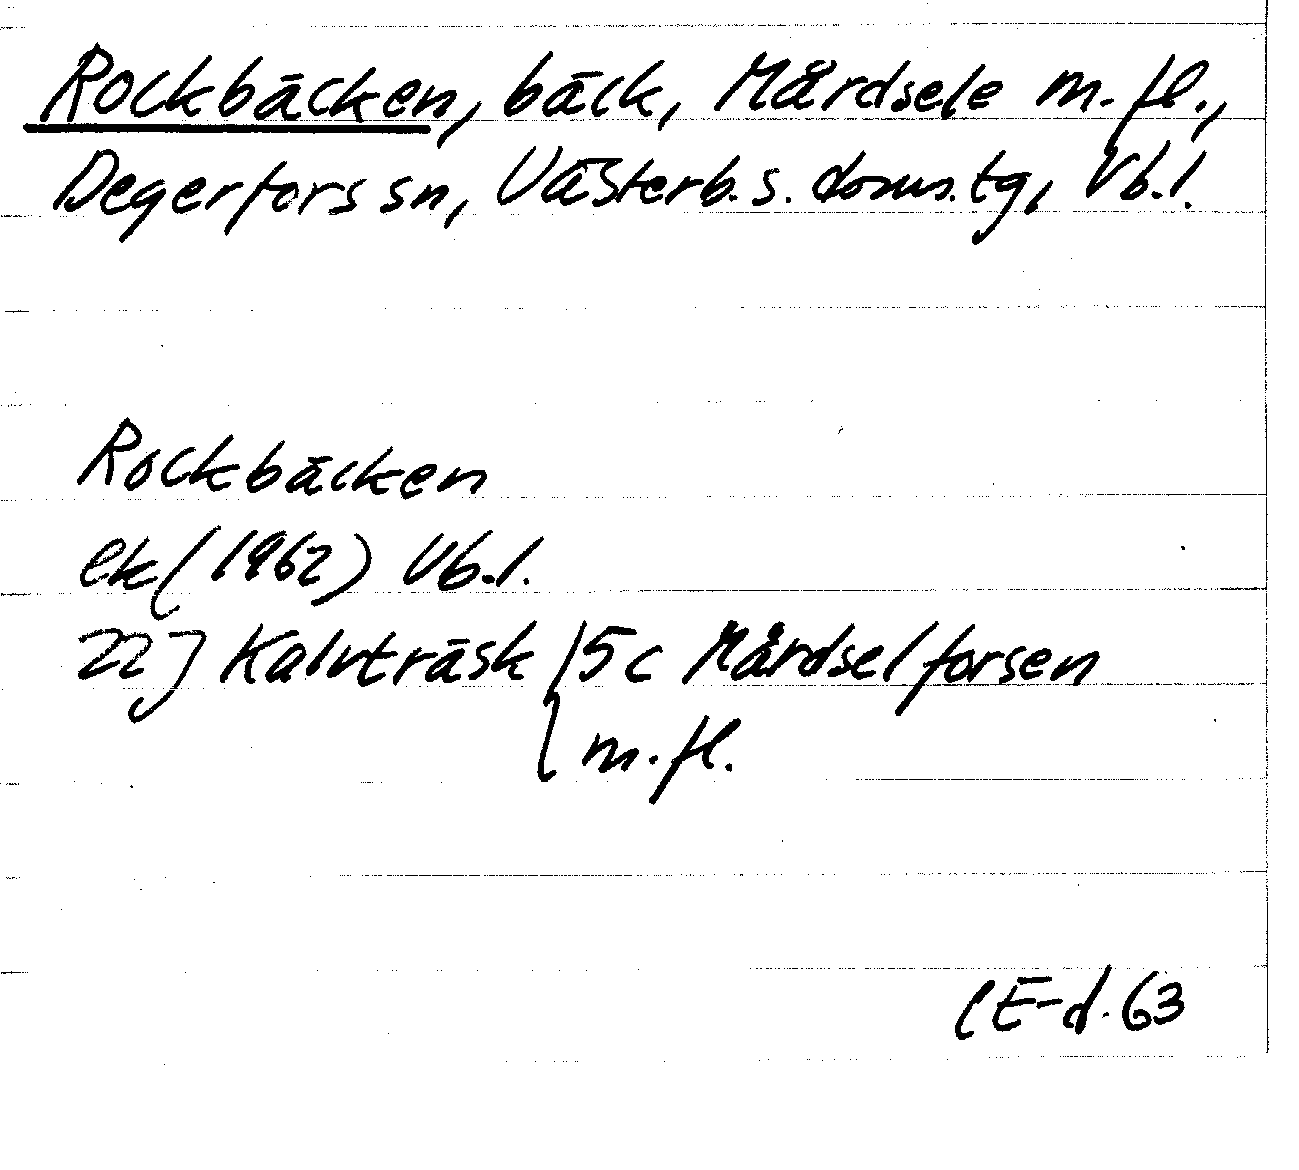 Rockbäcken, bäck, Mårdsele m.fl.,
Degerfors sn, Västerb. s. doms.tg, Vb.l.
Rockbäcken
ek (1962) Vb.l.
22J Kalvträsk { 5c Mårdselforsen
m.fl.
CE-d. 63